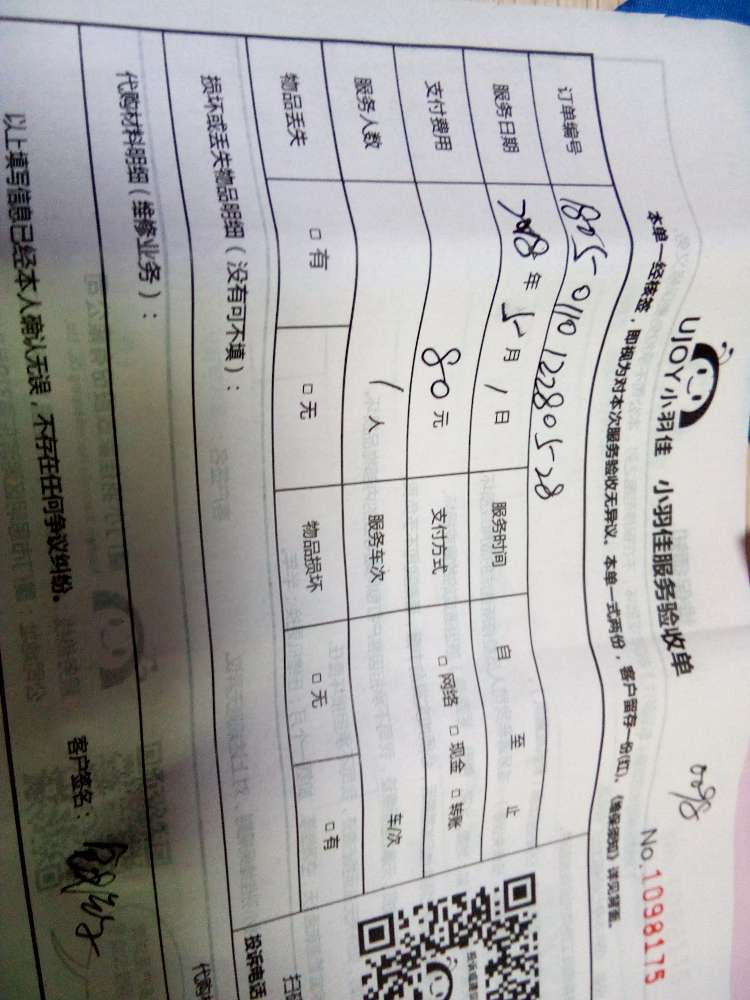 UJOY小羽佳 小羽佳服务验收单
0098
No.1098175
本单一经接签，即视为对本次服务验收无异议。本单一式两份，客户留存一份(红)。《维保须知》详见背面。
订单编号 1805011012280528
服务日期 2018年5月1日 服务时间 自 至 止
支付费用 80元 支付方式 □网络 □现金 □转账
服务人数 1人 服务车次 车次
物品丢失 □有 □无 物品损坏 □无 □有
损坏或丢失物品明细（没有可不填）：
代购材料明细（维修业务）：
以上填写信息已经本人确认无误，不存在任何争议纠纷。 客户签名：
投诉电话
代购